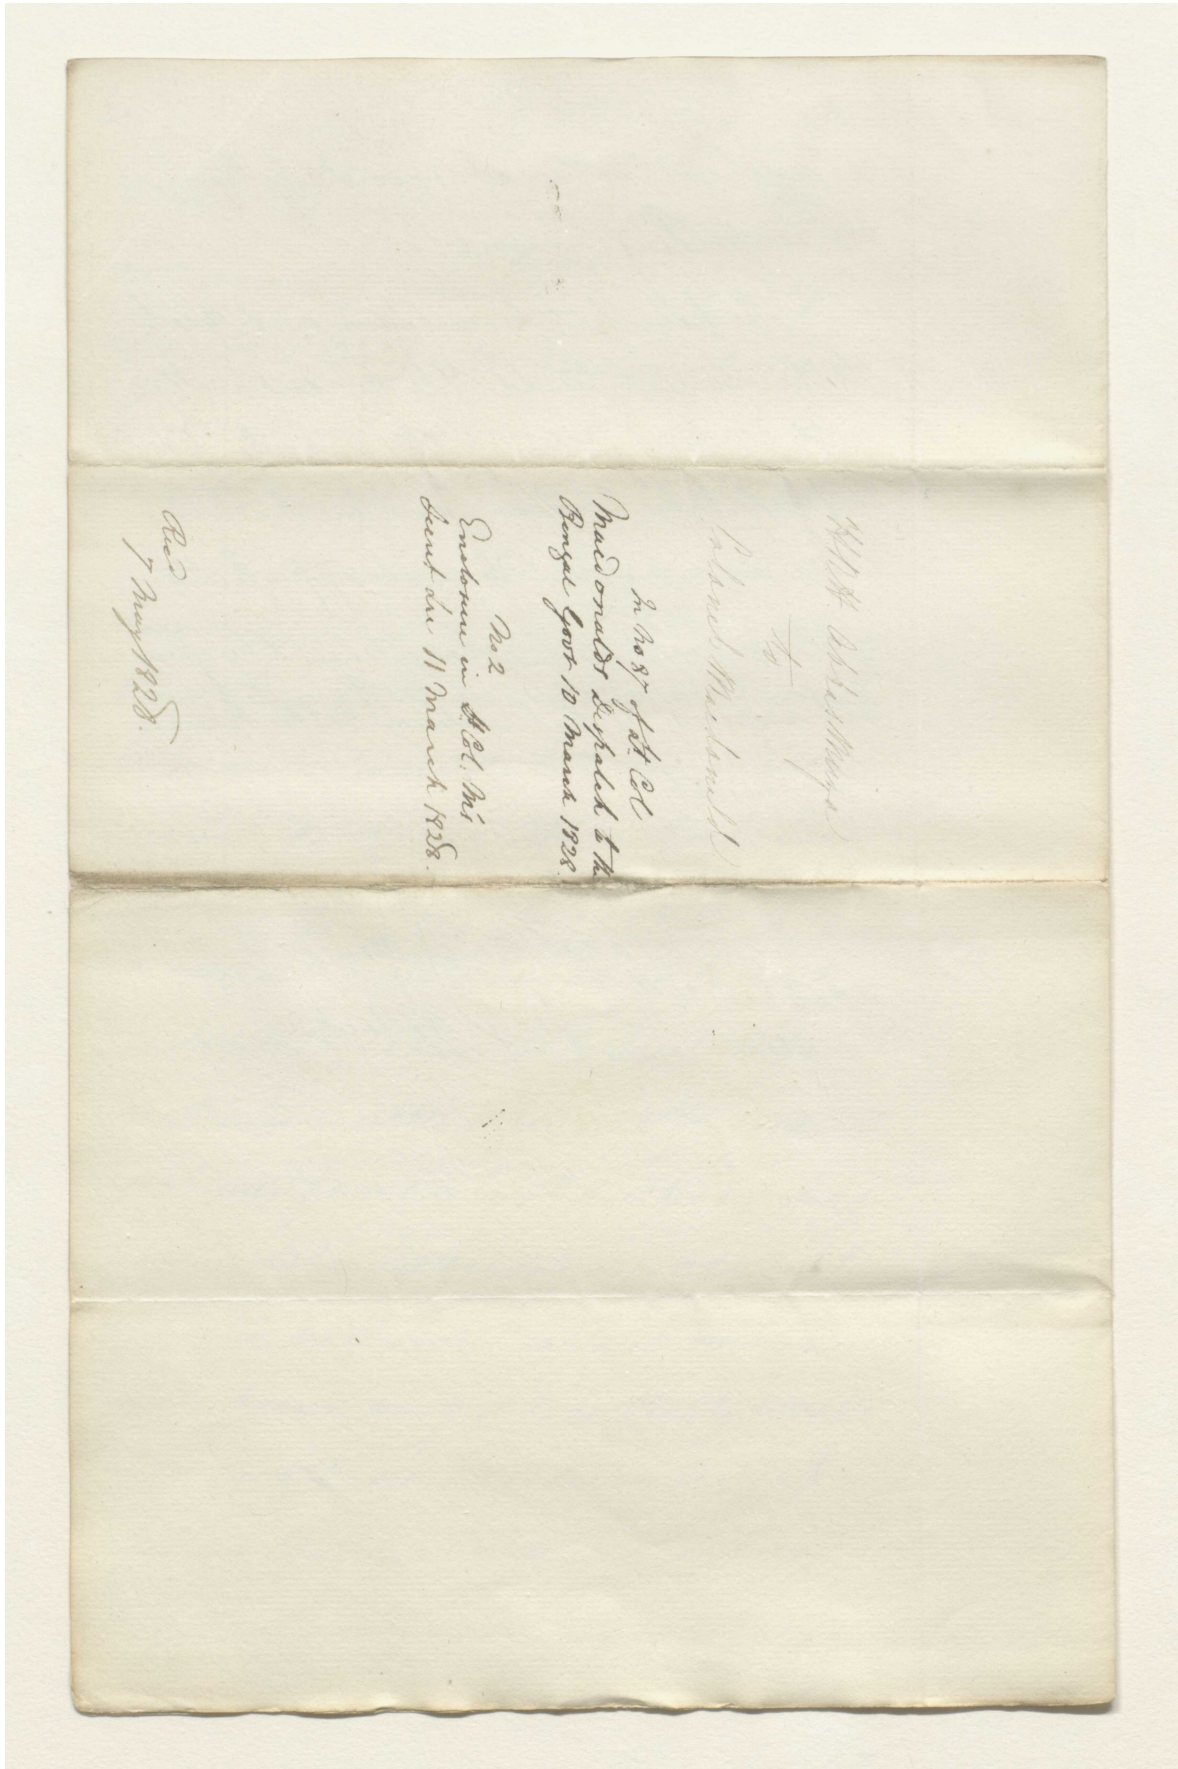 H.R.H. Abbas Mirza
to
Colonel Macdonald
In No 37 of Lt Col
Macdonalds Despatch to the
Bengal Govt 10 March 1828.
No 2
Enclosure in Lt Col. M's
Secret Lre 11 March 1828.
Recd
17 May 1828.